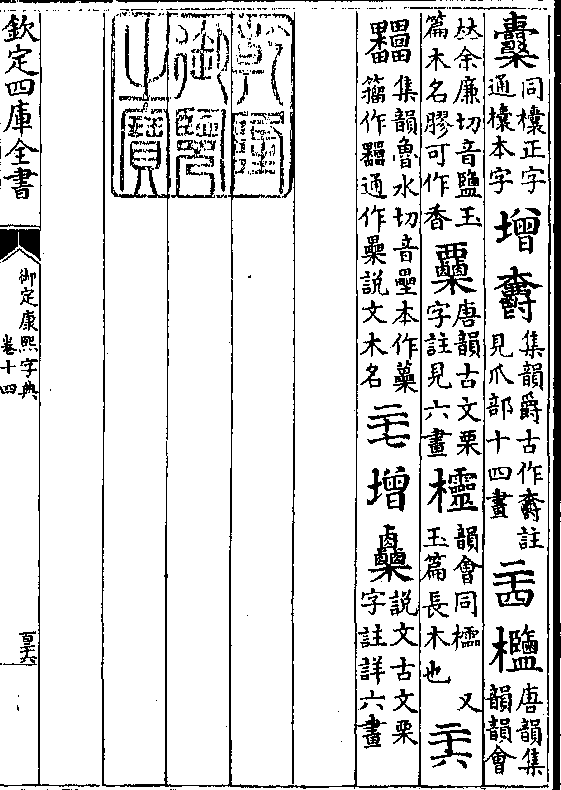 同欜正字通欜本字 增 集韻爵古作註見爪部十四畫 二十四 唐韻集韻韻會
𠀤余廉切音鹽玉篇木名膠可作香 唐韻古文栗字註見六畫 欞 韻會同櫺 又玉篇長木也 二十六
集韻魯水切音壘本作蘽籀作通作櫐說文木名 二十七 增 說文古文栗字註詳六畫
乾隆御覽之寶
欽定四庫全書
御定康熙字典
卷十四
百三六